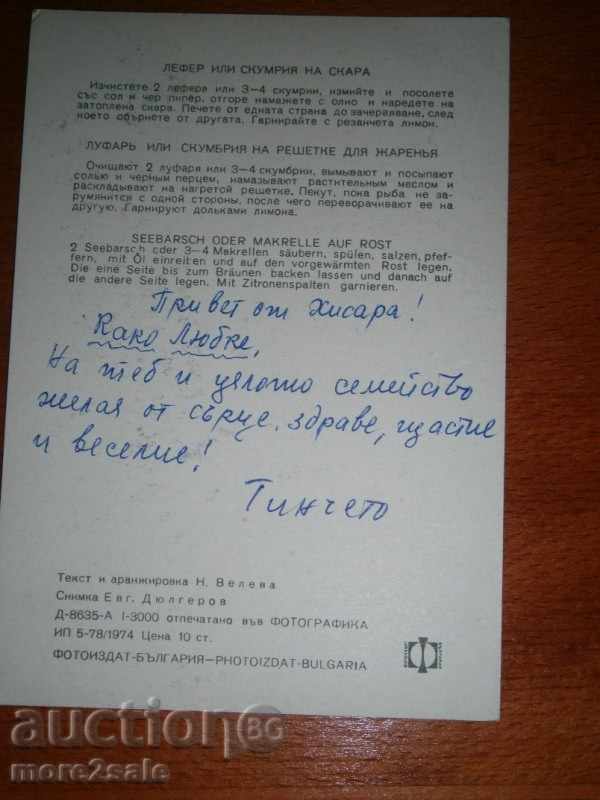 ЛЕФЕР ИЛИ СКУМРИЯ НА СКАРА
Изчистете 2 лефера или 3—4 скумрии, измийте и посолете
със сол и чер пипер, отгоре намажете с олио и наредете на
затоплена скара. Печете от едната страна до зачервяване, след
което обърнете от другата. Гарнирайте с резанчета лимон.
ЛУФАРЬ ИЛИ СКУМБРИЯ НА РЕШЕТКЕ ДЛЯ ЖАРЕНЬЯ
Очищают 2 луфаря или 3—4 скумбрии, вымывают и посыпают
солью и черным перцем, намазывают растительным маслом и
раскладывают на нагретой решетке. Пекут, пока рыба не за-
румянится с одной стороны, после чего переворачивают ее на
другую. Гарнируют дольками лимона.
SEEBARSCH ODER MAKRELLE AUF ROST
2 Seebarsch oder 3—4 Makrellen säubern, spülen, salzen, pfef-
fern, mit Öl einreiben und auf den vorgewärmten Rost legen.
Die eine Seite bis zum Bräunen backen lassen und danach auf
die andere Seite legen. Mit Zitronenspalten garnieren.
Привет от Хисара!
Како Любке,
На теб и цялото семейство
желая от сърце, здраве, щастие
и веселие!
Тинчето
Текст и аранжировка Н. Велева
Снимка Евг. Дюлгеров
Д-8635-А I-3000 отпечатано във ФОТОГРАФИКА
ИП 5-78/1974 Цена 10 ст.
ФОТОИЗДАТ-БЪЛГАРИЯ—PHOTOIZDAT-BULGARIA
auction BG
more2sale